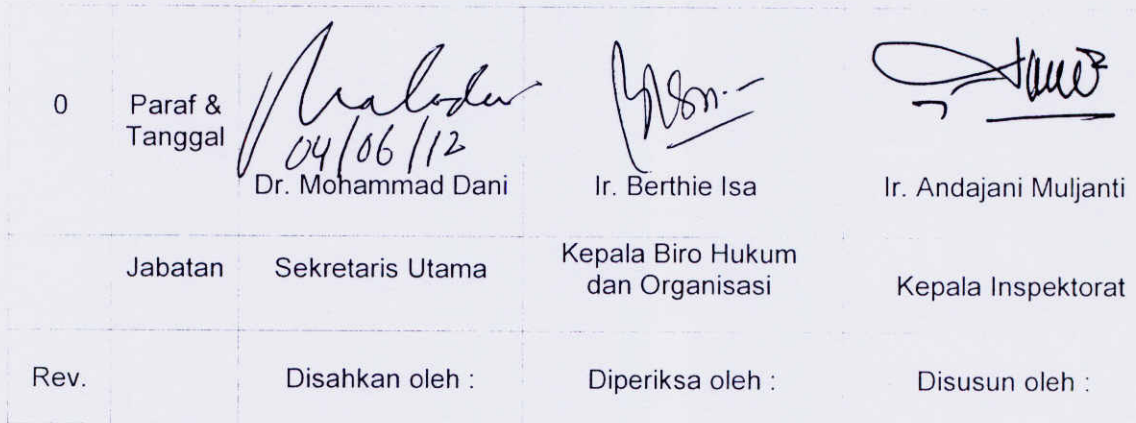 0
Paraf &
Tanggal
04/06/12
Dr. Mohammad Dani
Ir. Berthie Isa
Ir. Andajani Muljanti
Jabatan
Sekretaris Utama
Kepala Biro Hukum
dan Organisasi
Kepala Inspektorat
Rev.
Disahkan oleh :
Diperiksa oleh :
Disusun oleh :